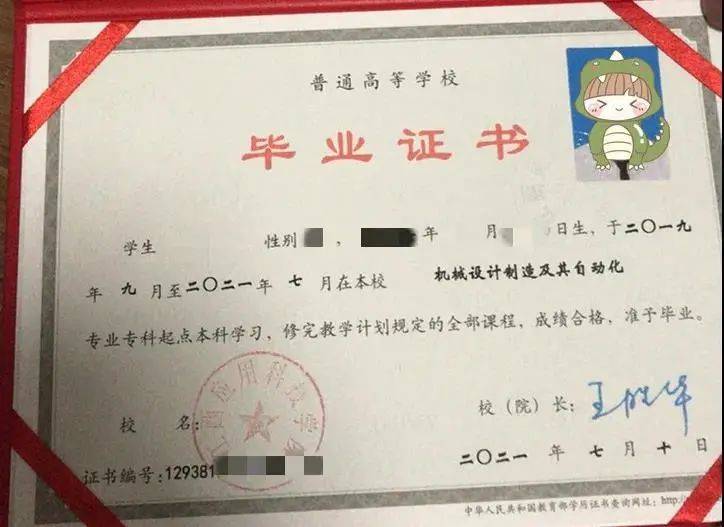 普通高等学校
毕业证书
学生 性别 , 年 月 日生，于二〇一九
年 九 月至二〇二一年 七 月在本校 机械设计制造及其自动化
专业专科起点本科学习，修完教学计划规定的全部课程，成绩合格，准予毕业。
江西应用科技学院
校 名： 校（院）长： 王胜华
证书编号：129381 二〇二一 年 七 月 十 日
中华人民共和国教育部学历证书查询网址：http:/